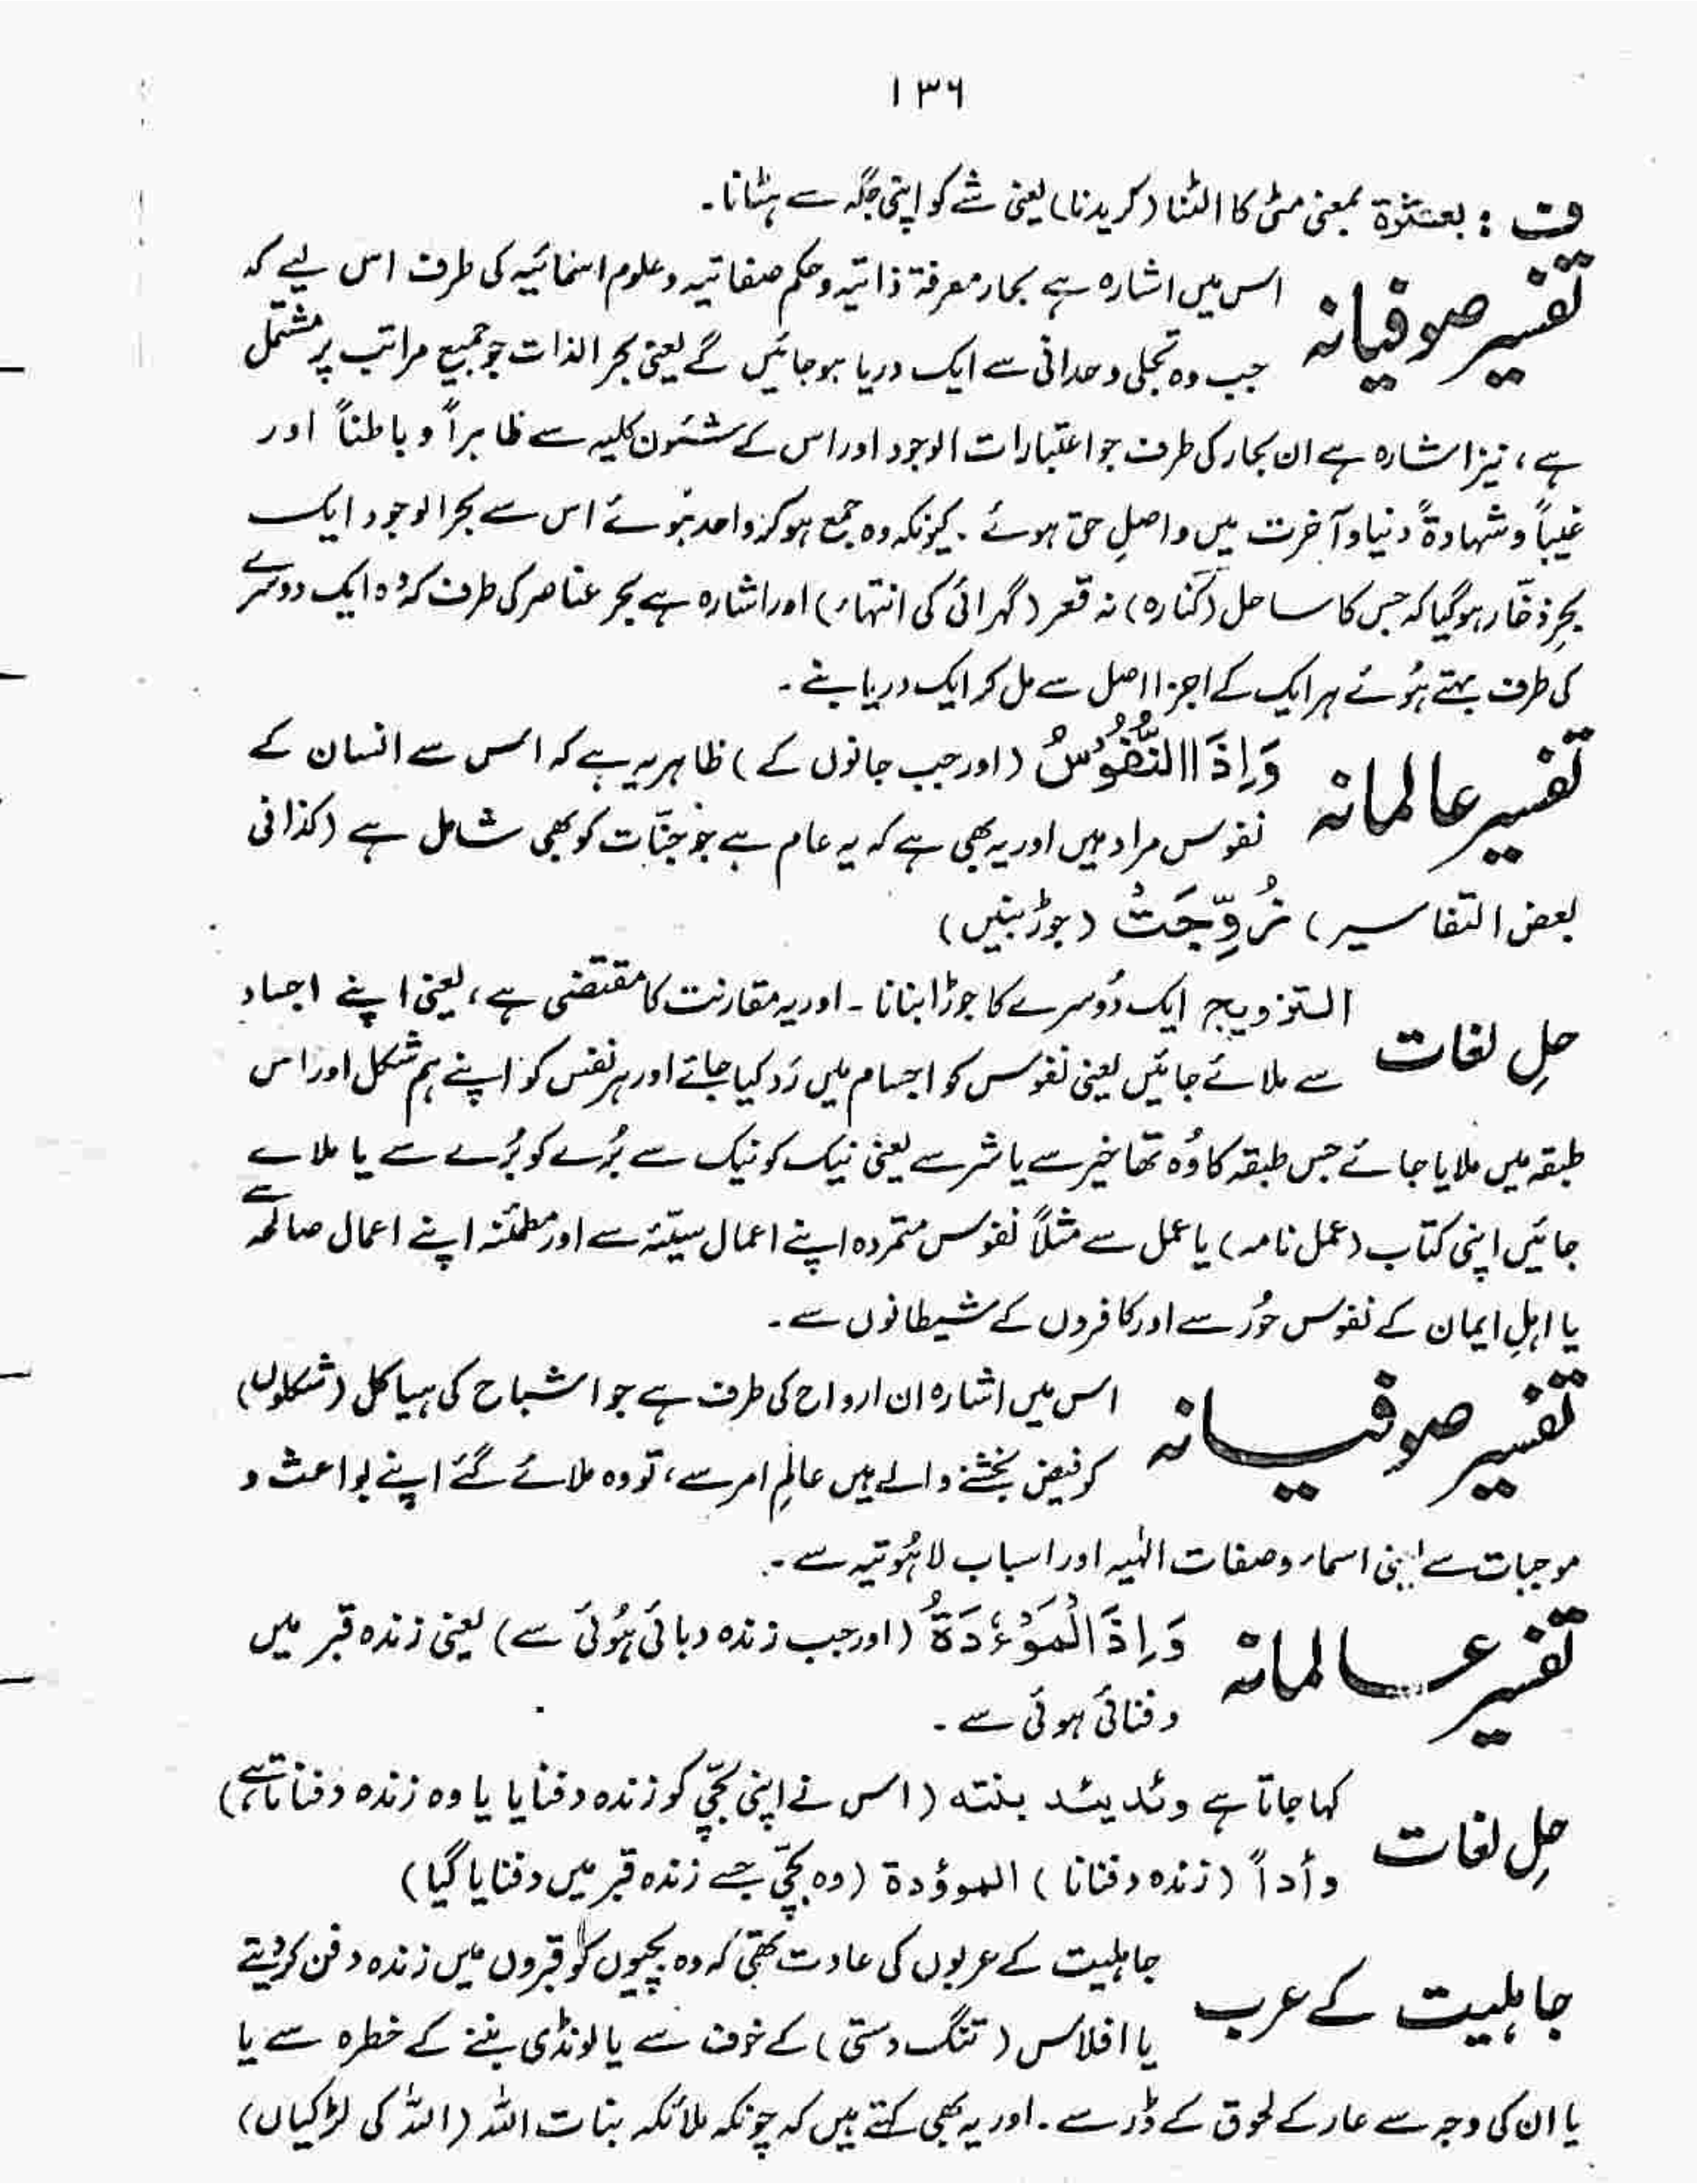 ۱۳۶
ف : بعثرۃ بمعنی مٹی کا الٹنا (کریدنا) یعنی شے کو اپنی جگہ سے ہٹانا۔
تفسیر صوفیانہ
اس میں اشارہ ہے بحار معرفۃ ذاتیہ و حکم صفاتیہ و علوم اسمائیہ کی طرف اس لیے کہ
جب وہ تجلی وحدانی سے ایک دریا ہو جائیں گے یعنی بحر الذات جو جمیع مراتب پر مشتمل
ہے، نیز اشارہ ہے ان بحار کی طرف جو اعتبارات الوجود اور اس کے شئون کلیہ سے ظاہراً و باطناً اور
غیباً و شہادۃً دنیا و آخرت میں واصلِ حق ہوئے۔ کیونکہ وہ جمع ہو کر واحد ہُوئے اس سے بحر الوجود ایک
بحرِ ذخّار ہو گیا کہ جس کا ساحل (کنارہ) نہ قعر (گہرائی کی انتہاء) اور اشارہ ہے بحر عناصر کی طرف کہ وُہ ایک دوسرے
کی طرف بہتے ہُوئے ہر ایک کے اجزا اصل سے مل کر ایک دریا بنے۔
تفسیر عالمانہ
وَاِذَا النُّفُوْسُ (اور جب جانوں کے) ظاہر یہ ہے کہ اس سے انسان کے
نفوس مراد ہیں اور یہ بھی ہے کہ یہ عام ہے جو جنّات کو بھی شامل ہے (کذا فی
بعض التفاسیر) زُوِّجَتْ (جوڑ بنیں)
حلِ لغات
التزویج ایک دُوسرے کا جوڑا بنانا۔ اور یہ مقارنت کا مقتضی ہے، یعنی اپنے اجساد
سے ملائے جائیں یعنی نفوس کو اجسام میں رَد کیا جائے اور ہر نفس کو اپنے ہم شکل اور اس
طبقہ میں ملایا جائے جس طبقہ کا وُہ تھا خیر سے یا شر سے یعنی نیک کو نیک سے بُرے کو بُرے سے یا ملائے
جائیں اپنی کتاب (عمل نامہ) یا عمل سے مثلاً نفوس متمردہ اپنے اعمال سیّئہ سے اور مطمئنہ اپنے اعمال صالحہ سے
یا اہلِ ایمان کے نفوس حُور سے اور کافروں کے شیطانوں سے۔
تفسیر صوفیانہ
اس میں اشارہ ان ارواح کی طرف ہے جو اشباح کی ہیاکل (شکلوں)
کو فیض بخشنے والے ہیں عالمِ امر سے، تو وہ ملائے گئے اپنے بواعث و
موجبات سے اپنی اسماء و صفات الٰہیہ اور اسباب لاہُوتیہ سے۔
تفسیر عالمانہ
وَاِذَا الْمَوْءٗدَۃُ (اور جب زندہ دبائی ہُوئی سے) یعنی زندہ قبر میں
دفنائی ہوئی سے۔
حلِ لغات
کہا جاتا ہے وئد یئد بنتہ (اس نے اپنی بچّی کو زندہ دفنایا یا وہ زندہ دفناتا ہے)
وأداً (زندہ دفنانا) الموؤدۃ (وہ بچّی جسے زندہ قبر میں دفنایا گیا)
جاہلیت کے عرب
جاہلیت کے عربوں کی عادت تھی کہ وہ بچیوں کو قبروں میں زندہ دفن کر دیتے
یا افلاس (تنگ دستی) کے خوف سے یا لونڈی بننے کے خطرہ سے یا
یا ان کی وجہ سے عار کے لحوق کے ڈر سے۔ اور یہ بھی کہتے ہیں کہ چونکہ ملائکہ بنات اللہ (اللہ کی لڑکیاں)